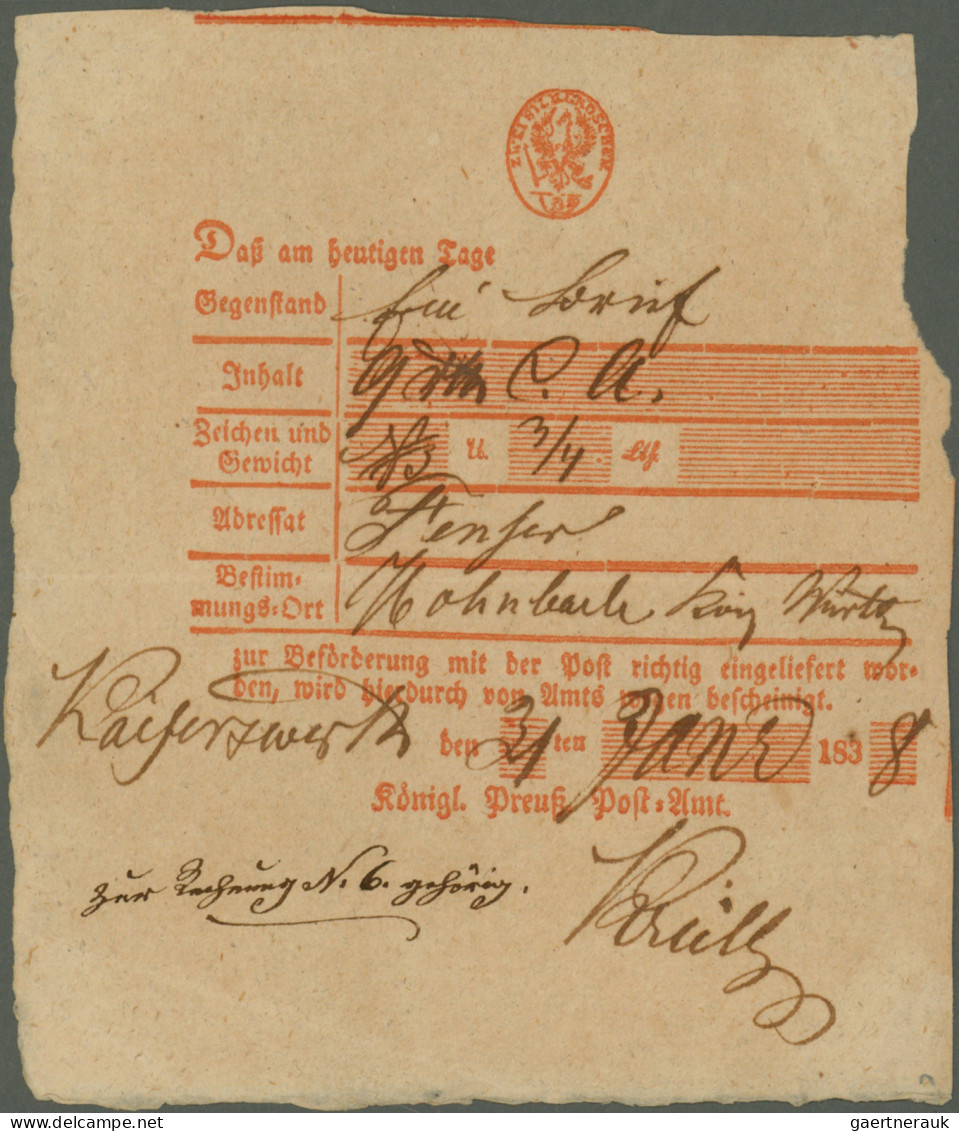 ZWEI SILBERGROSCHEN
Daß am heutigen Tage
Gegenstand Ein Brief
Inhalt C. A.
Zeichen und
Gewicht ℔. 3/4 Lth.
Adressat
Bestim-
mungs-Ort Hohnbach Kön Württ
zur Beförderung mit der Post richtig eingeliefert wor-
den, wird hierdurch von Amts wegen bescheinigt.
Kaiserswerth den 31 ten Janr 1838
Königl. Preuß. Post-Amt.
zur Rechnung N. 6. gehörig.
gaertnerauk